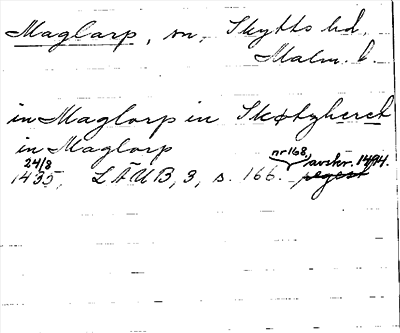 Maglarp, sn, Skytts hd.
Malm. l.
in Maglorp in Skøtyheret
in Maglorp
24/8 nr 168, avskr. 1494.
1435, LÄUB, 3, s. 166. regest